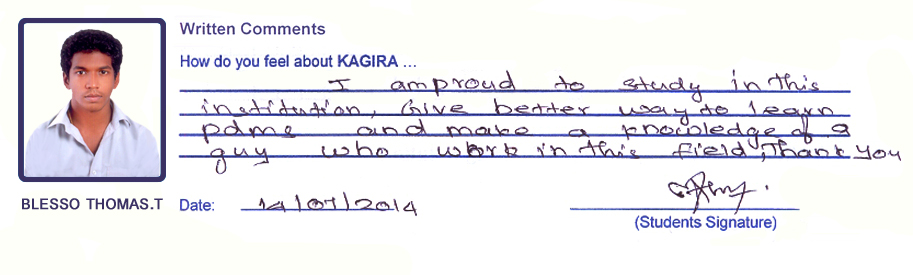 Written Comments
How do you feel about KAGIRA ...
I am proud to study in this
institution, Give better way to learn
pdms and make a knowledge of a
guy who work in this field, Thank you
BLESSO THOMAS.T
Date: 14/07/2014
(Students Signature)